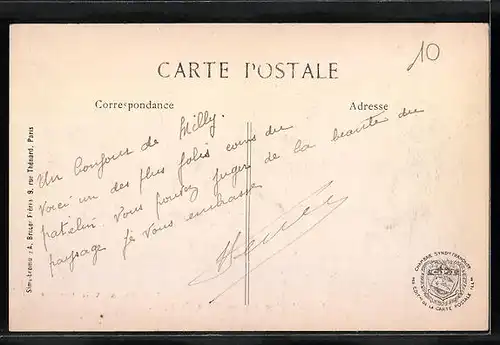 10
CARTE POSTALE
Correspondance
Adresse
Un bonjour de Milly.
Voici un des plus jolis coins du
patelin. Vous pouvez juger de la beauté du
paysage. Je vous embrasse
9, rue Thénard, Paris
CHAMBRE SYNDle FRANÇAISE
DE LA CARTE POSTALE ILLée